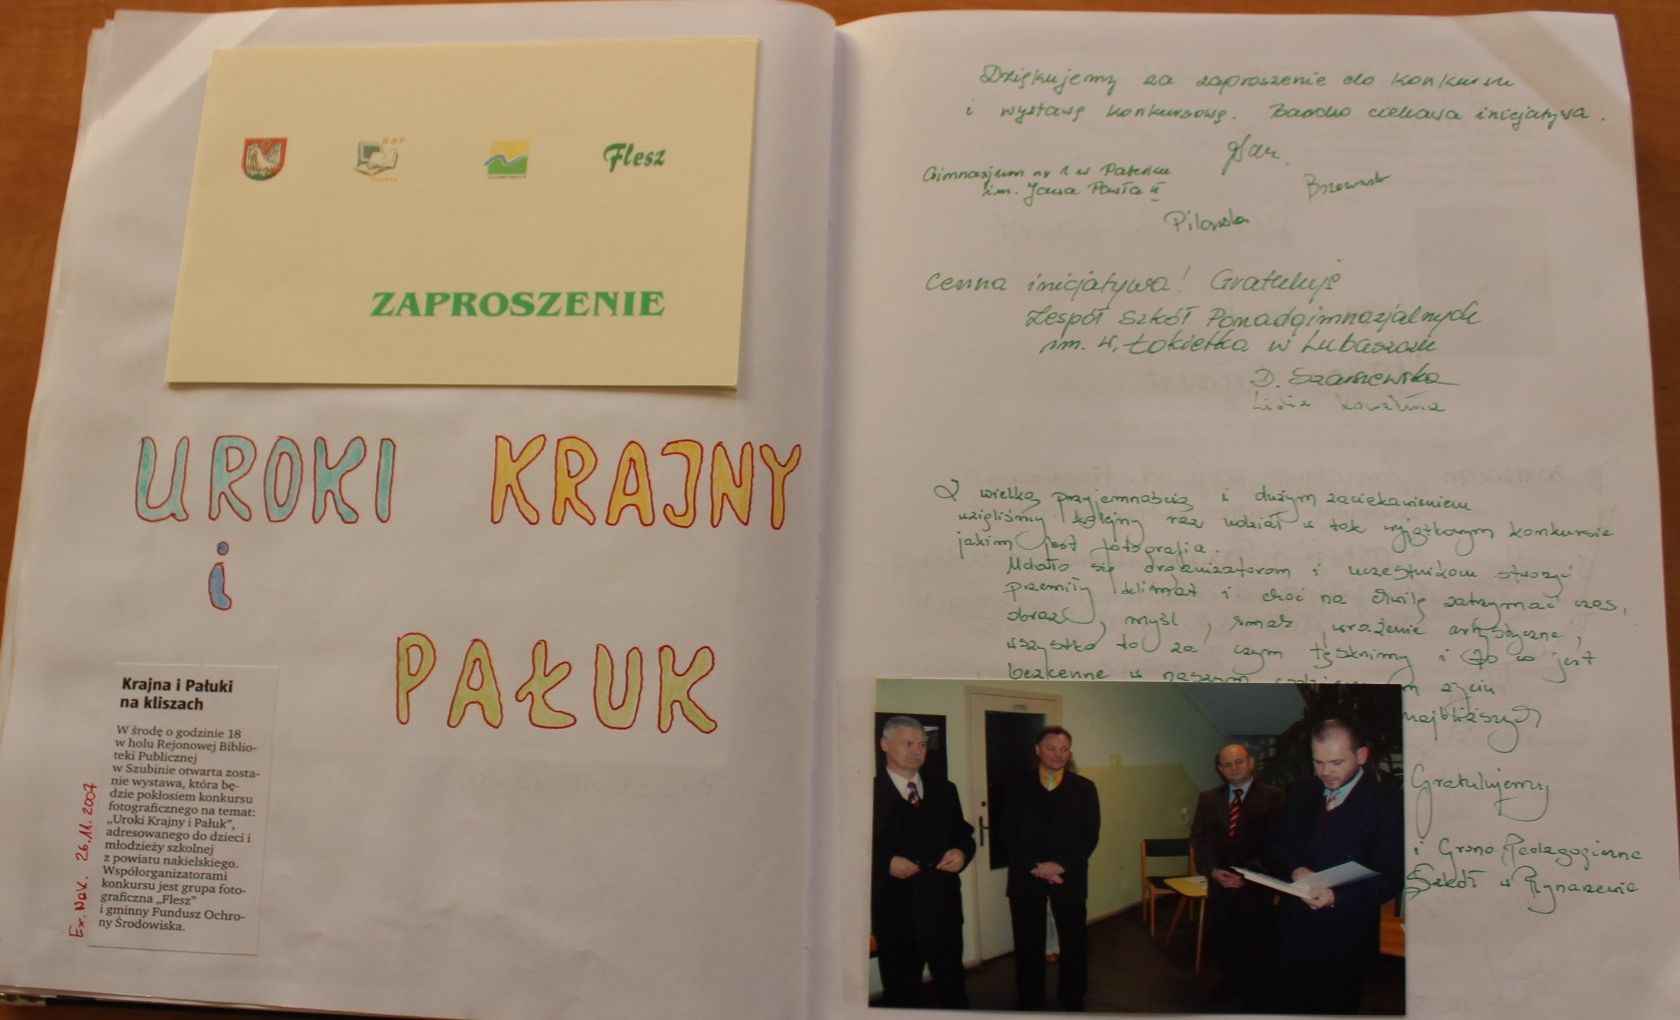 Flesz
ZAPROSZENIE
UROKI KRAJNY
i
PAŁUK
Krajna i Pałuki
na kliszach
W środę o godzinie 18
w holu Rejonowej Biblio-
teki Publicznej
w Szubinie otwarta zosta-
nie wystawa, która bę-
dzie pokłosiem konkursu
fotograficznego na temat:
„Uroki Krajny i Pałuk”,
adresowanego do dzieci i
młodzieży szkolnej
z powiatu nakielskiego.
Współorganizatorami
konkursu jest grupa foto-
graficzna „Flesz”
i gminny Fundusz Ochro-
ny Środowiska.
Ex. Nak. 26.11.2007
Dziękujemy za zaproszenie do konkursu
i wystawę konkursową. Bardzo ciekawa inicjatywa.
Gimnazjum nr 1 w
im. Jana Pawła II
Cenna inicjatywa! Gratuluję
Zespół Szkół Ponadgimnazjalnych
im. W. Łokietka w Lubaszczu
D.
Lidia
Z wielką przyjemnością i dużym zaciekawieniem
wzięliśmy kolejny raz udział w tak wyjątkowym konkursie
jakim jest fotografia.
Udało się organizatorom i uczestnikom stworzyć
przemiły klimat i choć na chwilę zatrzymać czas,
obraz, myśl, smak, wrażenie artystyczne,
wszystko to za czym tęsknimy i to co jest
bezcenne w naszym życiu
najbliższych
Gratulujemy
i Grono Pedagogiczne
Szkół w Rynarzewie